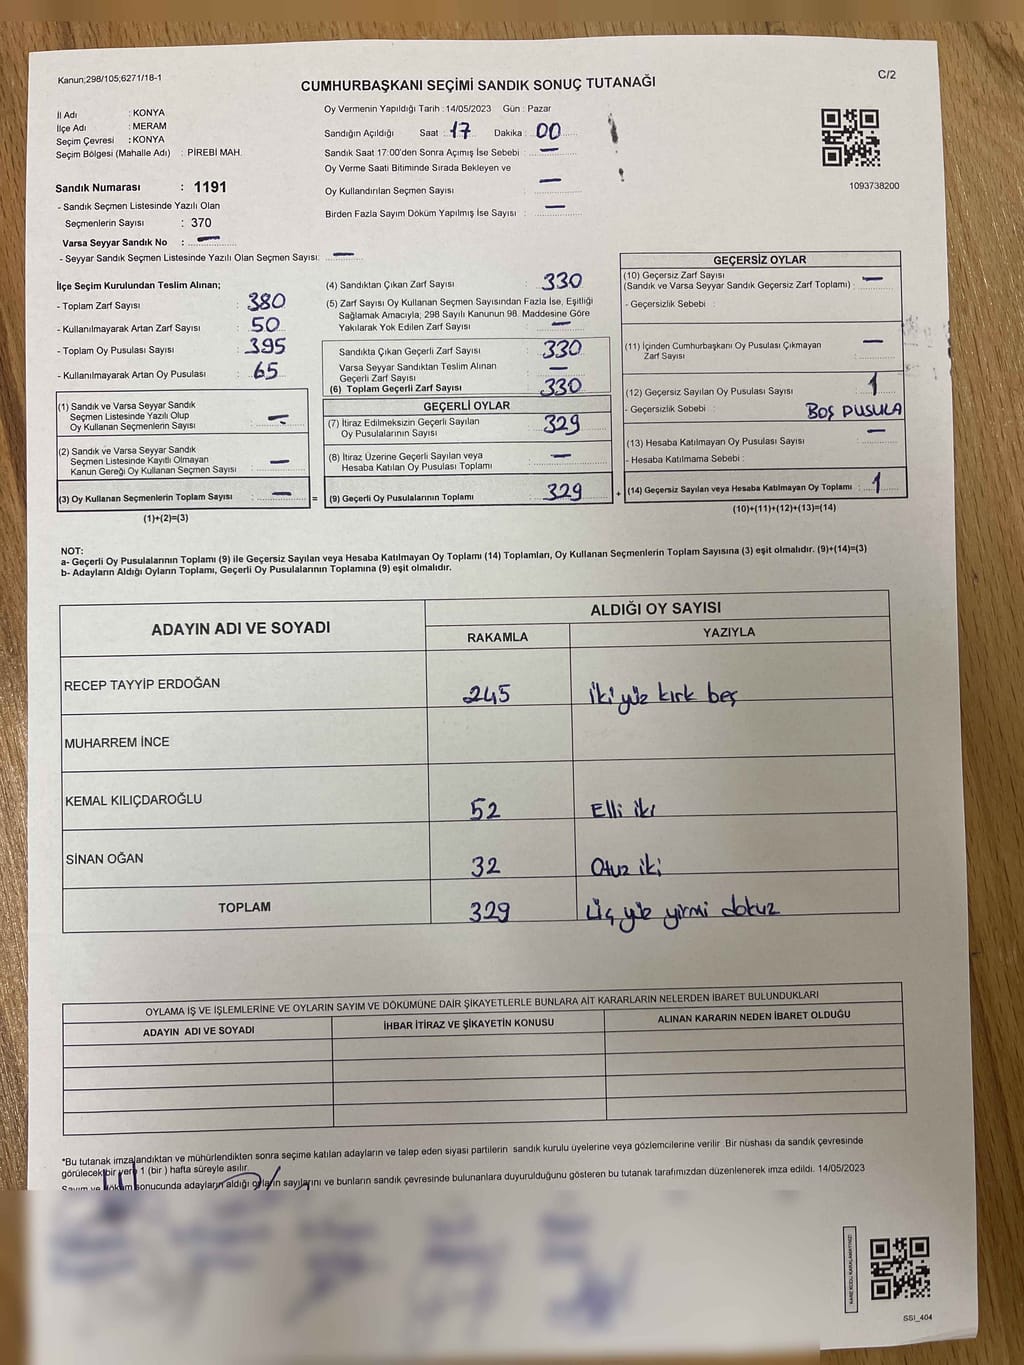 Kanun;298/105;6271/18-1
C/2
CUMHURBAŞKANI SEÇİMİ SANDIK SONUÇ TUTANAĞI
İl Adı : KONYA
İlçe Adı : MERAM
Seçim Çevresi : KONYA
Seçim Bölgesi (Mahalle Adı) : PİREBİ MAH.
Sandık Numarası : 1191
- Sandık Seçmen Listesinde Yazılı Olan
Seçmenlerin Sayısı : 370
Varsa Seyyar Sandık No : —
- Seyyar Sandık Seçmen Listesinde Yazılı Olan Seçmen Sayısı: —
Oy Vermenin Yapıldığı Tarih : 14/05/2023 Gün : Pazar
Sandığın Açıldığı Saat : 17 Dakika : 00
Sandık Saat 17:00'den Sonra Açımış İse Sebebi : —
Oy Verme Saati Bitiminde Sırada Bekleyen ve
Oy Kullandırılan Seçmen Sayısı : —
Birden Fazla Sayım Döküm Yapılmış İse Sayısı : —
1093738200
İlçe Seçim Kurulundan Teslim Alınan;
- Toplam Zarf Sayısı : 380
- Kullanılmayarak Artan Zarf Sayısı : 50
- Toplam Oy Pusulası Sayısı : 395
- Kullanılmayarak Artan Oy Pusulası : 65
(1) Sandık ve Varsa Seyyar Sandık
Seçmen Listesinde Yazılı Olup
Oy Kullanan Seçmenlerin Sayısı : —
(2) Sandık ve Varsa Seyyar Sandık
Seçmen Listesinde Kayıtlı Olmayan
Kanun Gereği Oy Kullanan Seçmen Sayısı : —
(3) Oy Kullanan Seçmenlerin Toplam Sayısı : — =
(1)+(2)=(3)
(4) Sandıktan Çıkan Zarf Sayısı : 330
(5) Zarf Sayısı Oy Kullanan Seçmen Sayısından Fazla İse, Eşitliği
Sağlamak Amacıyla; 298 Sayılı Kanunun 98. Maddesine Göre
Yakılarak Yok Edilen Zarf Sayısı : —
Sandıkta Çıkan Geçerli Zarf Sayısı : 330
Varsa Seyyar Sandıktan Teslim Alınan
Geçerli Zarf Sayısı : —
(6) Toplam Geçerli Zarf Sayısı : 330
GEÇERLİ OYLAR
(7) İtiraz Edilmeksizin Geçerli Sayılan
Oy Pusulalarının Sayısı : 329
(8) İtiraz Üzerine Geçerli Sayılan veya
Hesaba Katılan Oy Pusulası Toplamı : —
(9) Geçerli Oy Pusulalarının Toplamı : 329 +
GEÇERSİZ OYLAR
(10) Geçersiz Zarf Sayısı
(Sandık ve Varsa Seyyar Sandık Geçersiz Zarf Toplamı) : —
- Geçersizlik Sebebi :
(11) İçinden Cumhurbaşkanı Oy Pusulası Çıkmayan
Zarf Sayısı : —
(12) Geçersiz Sayılan Oy Pusulası Sayısı : 1
- Geçersizlik Sebebi : BOŞ PUSULA
(13) Hesaba Katılmayan Oy Pusulası Sayısı : —
- Hesaba Katılmama Sebebi :
(14) Geçersiz Sayılan veya Hesaba Katılmayan Oy Toplamı : 1
(10)+(11)+(12)+(13)=(14)
NOT:
a- Geçerli Oy Pusulalarının Toplamı (9) ile Geçersiz Sayılan veya Hesaba Katılmayan Oy Toplamı (14) Toplamları, Oy Kullanan Seçmenlerin Toplam Sayısına (3) eşit olmalıdır. (9)+(14)=(3)
b- Adayların Aldığı Oyların Toplamı, Geçerli Oy Pusulalarının Toplamına (9) eşit olmalıdır.
ADAYIN ADI VE SOYADI
ALDIĞI OY SAYISI
RAKAMLA YAZIYLA
RECEP TAYYİP ERDOĞAN 245 İki yüz kırk beş
MUHARREM İNCE
KEMAL KILIÇDAROĞLU 52 Elli iki
SİNAN OĞAN 32 Otuz iki
TOPLAM 329 Üç yüz yirmi dokuz
OYLAMA İŞ VE İŞLEMLERİNE VE OYLARIN SAYIM VE DÖKÜMÜNE DAİR ŞİKAYETLERLE BUNLARA AİT KARARLARIN NELERDEN İBARET BULUNDUKLARI
ADAYIN ADI VE SOYADI İHBAR İTİRAZ VE ŞİKAYETİN KONUSU ALINAN KARARIN NEDEN İBARET OLDUĞU
*Bu tutanak imzalandıktan ve mühürlendikten sonra seçime katılan adayların ve talep eden siyasi partilerin sandık kurulu üyelerine veya gözlemcilerine verilir .Bir nüshası da sandık çevresinde
görülecek bir yere 1 (bir ) hafta süreyle asılır.
Sayım ve döküm sonucunda adayların aldığı oyların sayılarını ve bunların sandık çevresinde bulunanlara duyurulduğunu gösteren bu tutanak tarafımızdan düzenlenerek imza edildi. 14/05/2023
KARE KODU KARALAMAYINIZ!
SSI_404